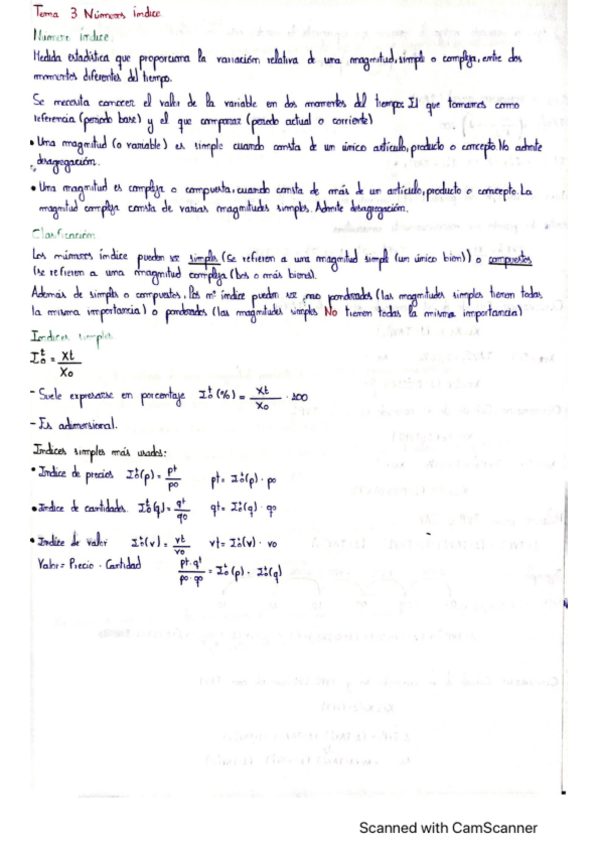 Tema 3 Números índice
Número índice:
Medida estadística que proporciona la variación relativa de una magnitud, simple o compleja, entre dos
momentos diferentes del tiempo.
Se necesita conocer el valor de la variable en dos momentos del tiempo: El que tomamos como
referencia (periodo base) y el que comparar (periodo actual o corriente)
• Una magnitud (o variable) es simple cuando consta de un único artículo, producto o concepto. No admite
desagregación.
• Una magnitud es compleja o compuesta, cuando consta de más de un artículo, producto o concepto. La
magnitud compleja consta de varias magnitudes simples. Admite desagregación.
Clasificación
Los números índice pueden ser simples (Se refieren a una magnitud simple (un único bien)) o compuestos
(se refieren a una magnitud compleja (dos o más bienes).
Además de simples o compuestos, los nº índice pueden ser no ponderados (las magnitudes simples tienen todas
la misma importancia) o ponderados (las magnitudes simples No tienen todas la misma importancia)
Indices simples
I₀ᵗ = Xt / X₀
- Suele expresarse en porcentaje I₀ᵗ(%) = Xt / X₀ · 100
- Es adimensional.
Indices simples más usados:
• Indice de precios I₀ᵗ(p) = pt / p₀ pt = I₀ᵗ(p) · p₀
• Indice de cantidades I₀ᵗ(q) = qt / q₀ qt = I₀ᵗ(q) · q₀
• Indice de valor I₀ᵗ(v) = vt / v₀ vt = I₀ᵗ(v) · v₀
Valor = Precio · Cantidad pt·qt / p₀·q₀ = I₀ᵗ(p) · I₀ᵗ(q)
Scanned with CamScanner